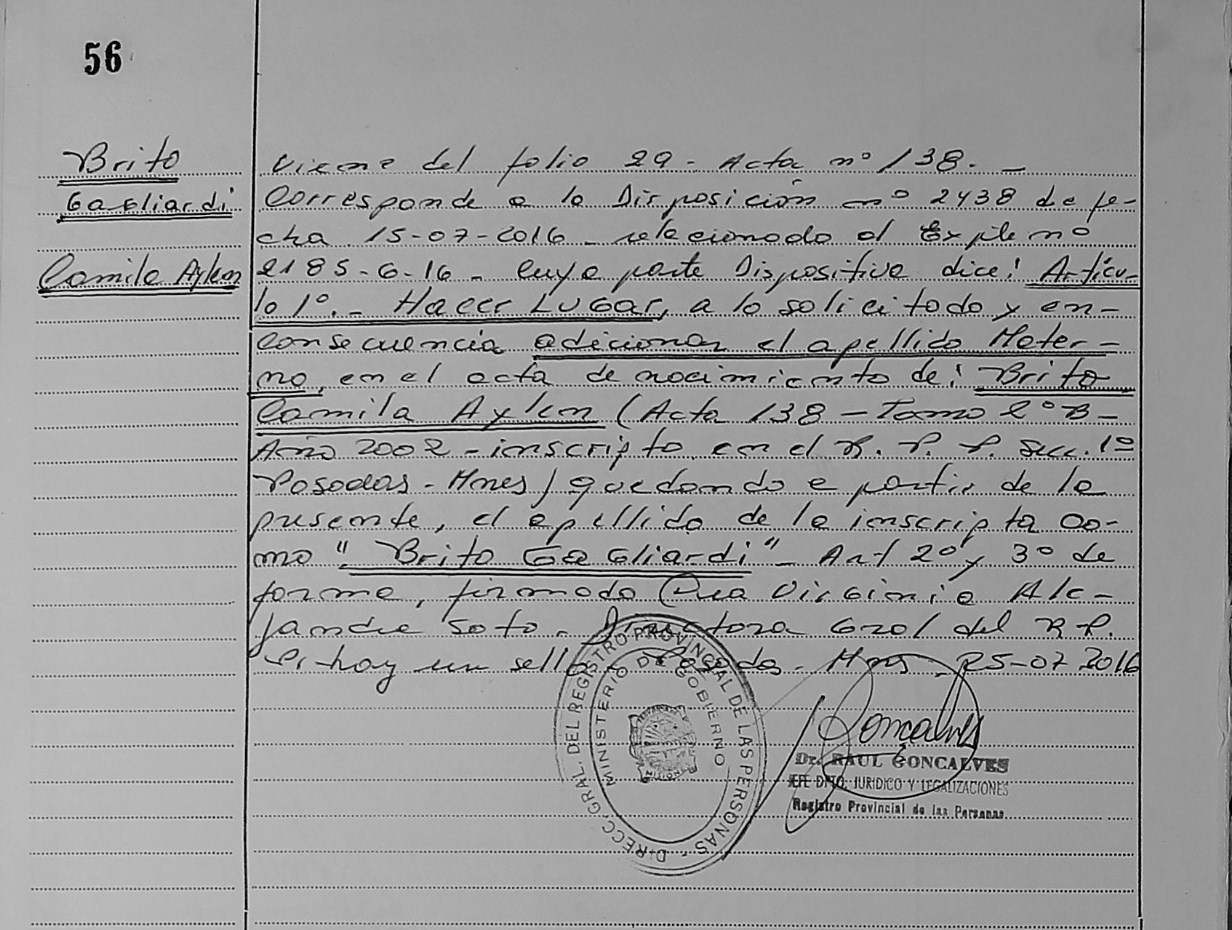 56
Brito
Gagliardi
Camila Aylen
Viene del folio 29 - Acta nº 138. -
Corresponde a la Disposición nº 2438 de fe-
cha 15-07-2016 - relacionado al Expte nº
2185-G-16 - cuya parte Dispositiva dice: Artícu-
lo 1º.- Hacer Lugar, a lo solicitado y en-
consecuencia adicionar el apellido Mater-
no, en el acta de nacimiento de: Brito
Camila Aylen (Acta 138 - Tomo 2º B -
Año 2002 - inscripta en el R. P. P. Secc. 1º
Posadas - Mnes) quedando a partir de la
presente, el apellido de la inscripta co-
mo "Brito Gagliardi" - Art 2º y 3º de
forma, firmado Dra Virginia Ale-
jandra Soto - Directora Gral del R. P.
P. hay un sello - Posadas - Mnes - 25-07-2016
DIRECC. GRAL. DEL REGISTRO PROVINCIAL DE LAS PERSONAS
MINISTERIO DE GOBIERNO
MISIONES
Goncalves
Dr. RAUL GONCALVES
JEFE DPTO. JURIDICO Y LEGALIZACIONES
Registro Provincial de las Personas